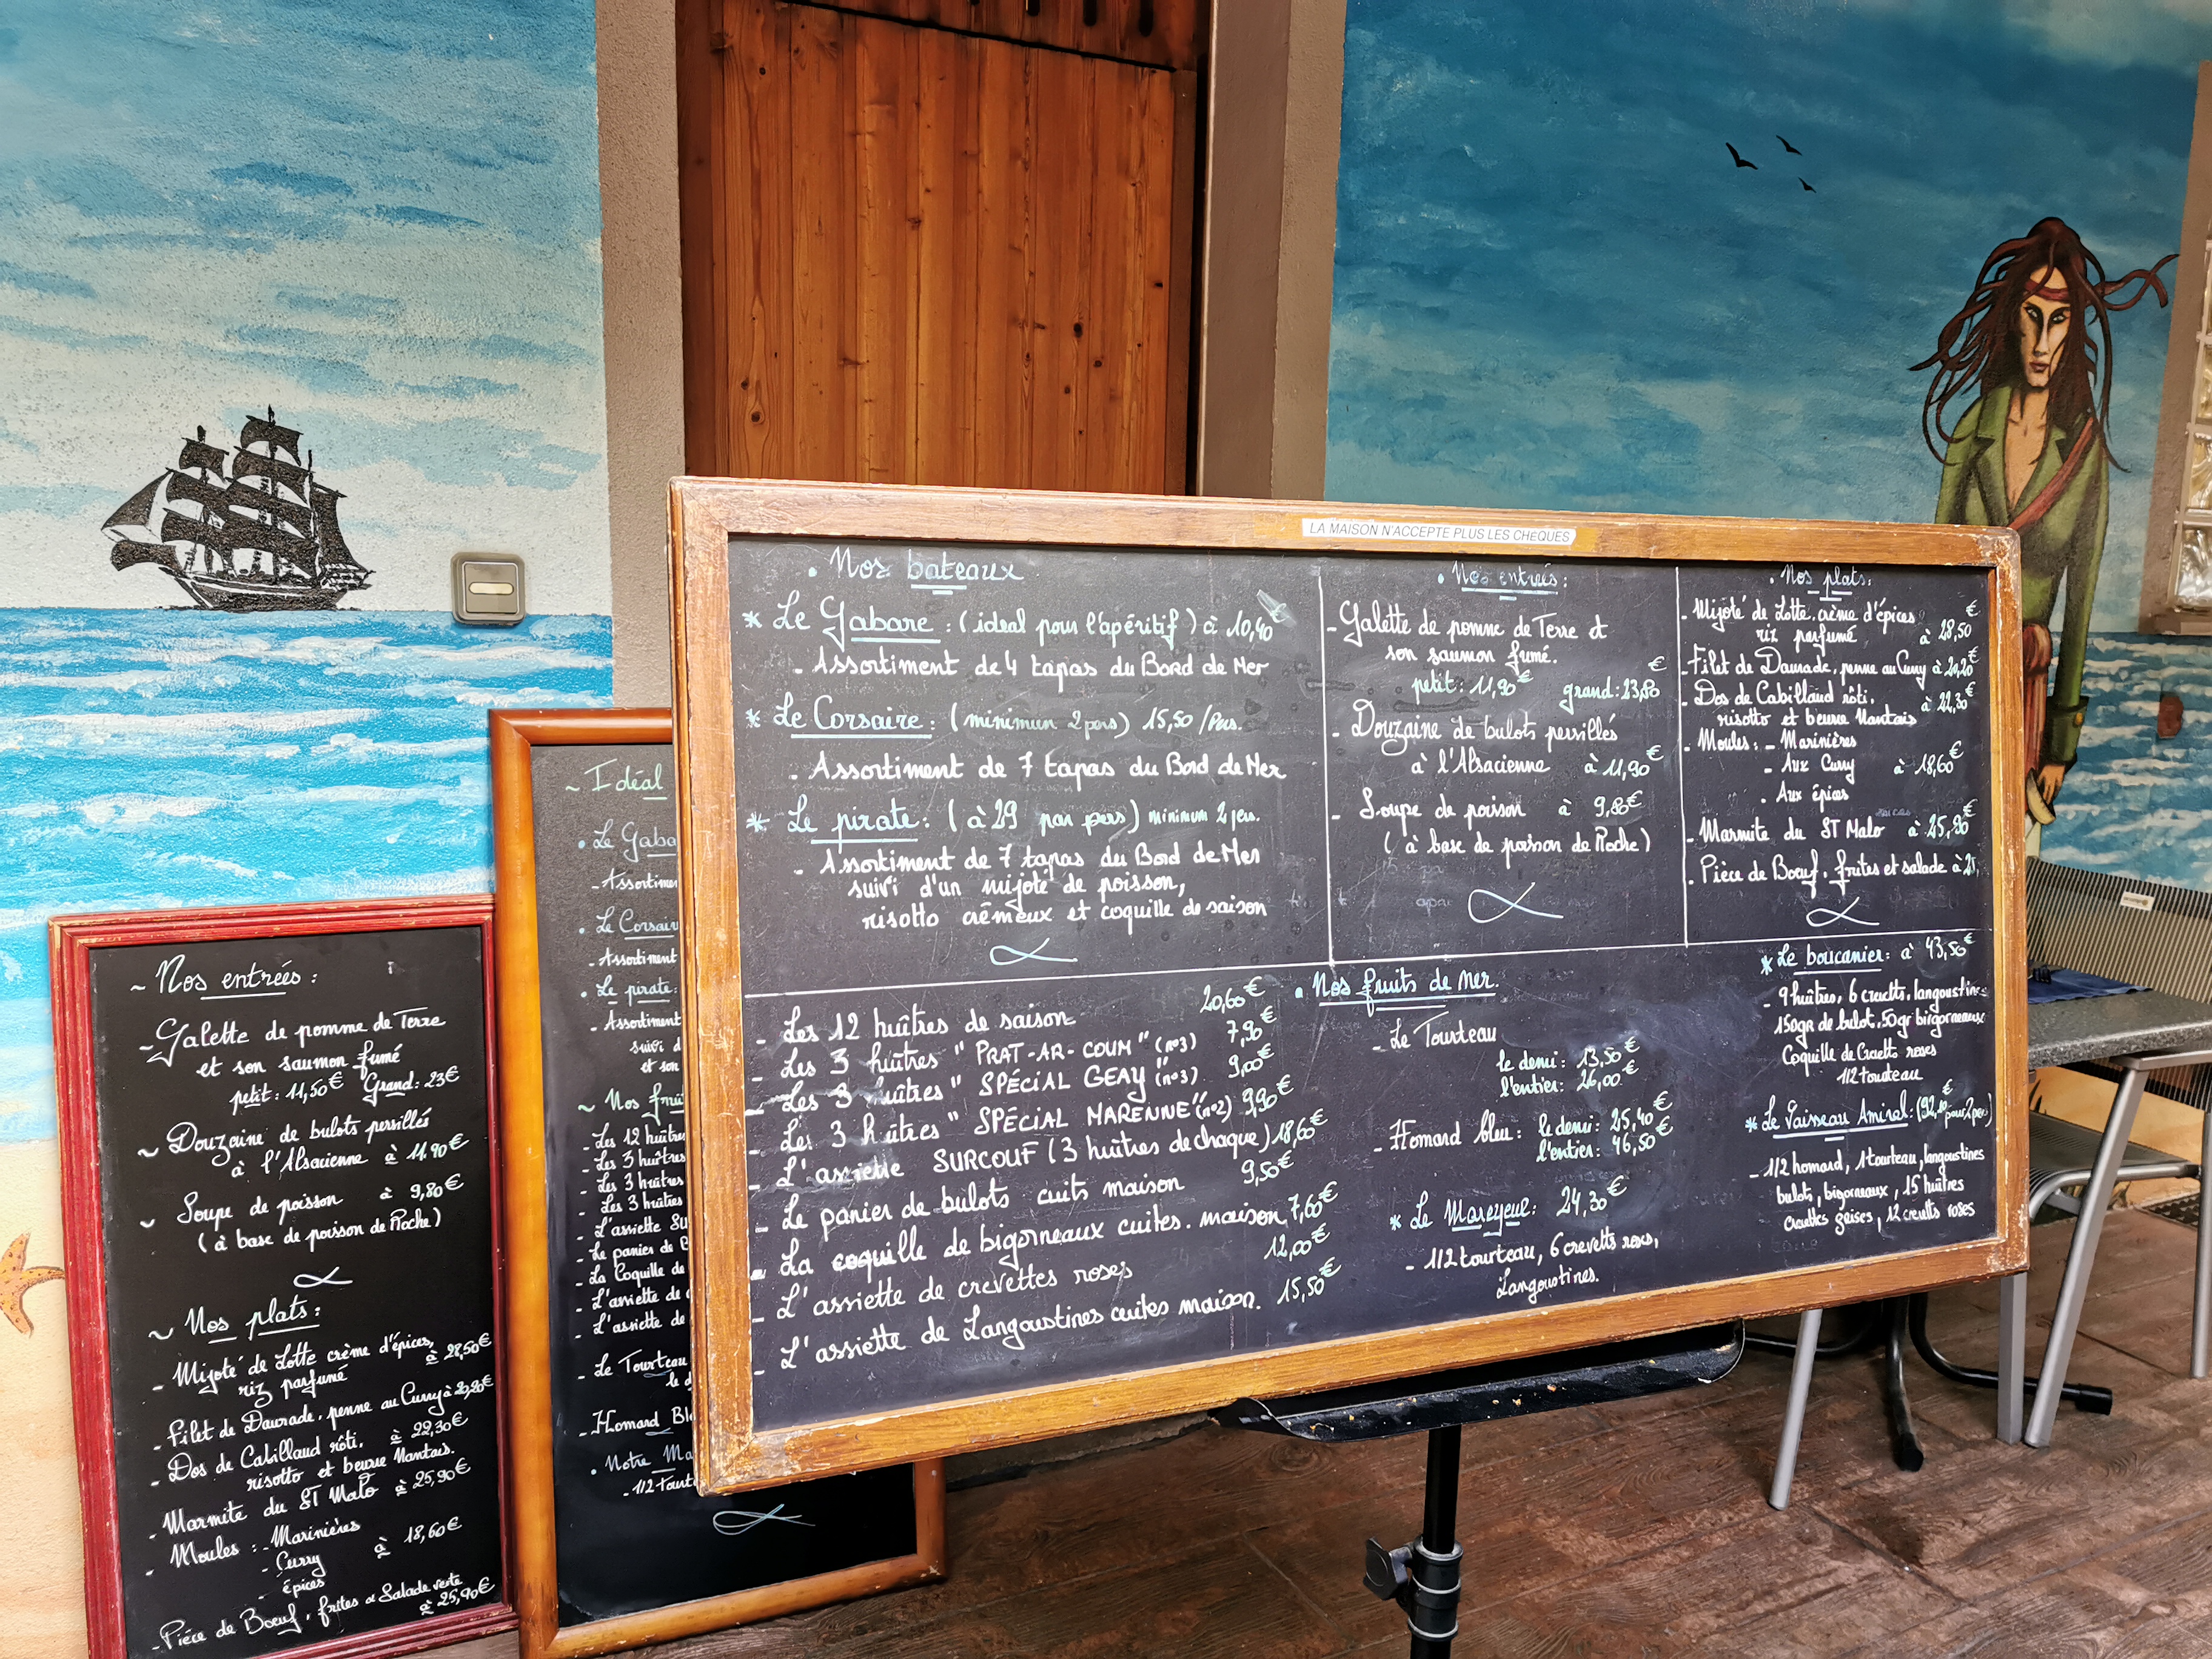 LA MAISON N'ACCEPTE PLUS LES CHEQUES
. Nos bateaux
* Le Gabare : (ideal pour l'apéritif) à 10,40€
- Assortiment de 4 tapas du Bord de Mer
* Le Corsaire : (minimum 2 pers) 15,50 /Pers.
- Assortiment de 7 tapas du Bord de Mer
* Le pirate : ( à 29 par pers) minimum 2 pers.
- Assortiment de 7 tapas du Bord de Mer
suivi d'un mijoté de poisson,
risotto crémeux et coquille de saison
. Nos entrées :
- Galette de pomme de Terre et
son saumon fumé.
petit : 11,90€ grand : 23,80€
- Douzaine de bulots persillés
à l'Alsacienne à 11,90€
- Soupe de poisson à 9,80€
( à base de poisson de Roche )
. Nos plats :
- Mijoté de Lotte. crème d'épices
riz parfumé à 28,50€
- Filet de Daurade. penne au Curry à 20,20€
- Dos de Cabillaud rôti. à 22,30€
risotto et beurre Nantais
- Moules : - Marinières
- Aux Curry à 18,60€
- Aux épices
- Marmite du ST Malo à 25,90€
- Pièce de Boeuf. frites et salade à
. Nos fruits de mer.
- Les 12 huîtres de saison 20,60€
- Les 3 huîtres " PRAT-AR-COUM " (n°3) 7,90€
- Les 3 huîtres " SPÉCIAL GEAY " (n°3) 9,00€
- Les 3 huîtres " SPÉCIAL MARENNE" (n°2) 9,90€
- L'assiette SURCOUF (3 huîtres de chaque) 18,60€
- Le panier de bulots cuits maison 9,50€
- La coquille de bigorneaux cuites. maison 7,60€
- L'assiette de crevettes roses 12,00€
- L'assiette de Langoustines cuites maison. 15,50€
- Le Tourteau
le demi : 13,50€
l'entier : 26,00€
- Homard bleu : le demi : 25,40€
l'entier : 46,50€
* Le Mareyeur : 24,30€
- 1/2 tourteau, 6 crevetts roses,
Langoustines.
* Le boucanier : à 43,50€
- 9 huîtres, 6 crevetts, langoustines
150gr de bulot, 50gr bigorneaux
Coquille de Crevetts roses
1/2 tourteau
* Le Vaisseau Amiral : pour 2 per)
- 1/2 homard, 1 tourteau, langoustines
bulots, bigorneaux, 15 huîtres
crevettes grises, 12 crevetts roses
~ Idéal
. Le Gaba
- Assortimen
. Le Corsair
- Assortiment
. Le pirate :
- Assortiment
suivi d
et son
~ Nos frui
- Les 12 huîtres
- Les 3 huîtres
- Les 3 huîtres
- Les 3 huîtres
- L'assiette Su
- Le panier de B
- La Coquille de
- L'assiette de
- L'assiette de
- Le Tourteau
le d
- Homard Ble
. Notre Ma
- 1/2 Tourt
~ Nos entrées :
- Galette de pomme de Terre
et son saumon fumé
petit : 11,50€ Grand : 23€
~ Douzaine de bulots persillés
à l'Alsacienne à 11.90€
~ Soupe de poisson à 9,80€
( à base de poisson de Roche )
~ Nos plats :
- Mijoté de Lotte crème d'épices,
riz parfumé à 28,50€
- Filet de Daurade. penne au Curry à 20,20€
- Dos de Cabillaud rôti. à 22,30€
risotto et beurre Nantais.
- Marmite du ST Malo à 25,90€
- Moules : - Marinières
- Curry à 18,60€
- épices
- Pièce de Boeuf. frites et Salade verte
à 25,90€